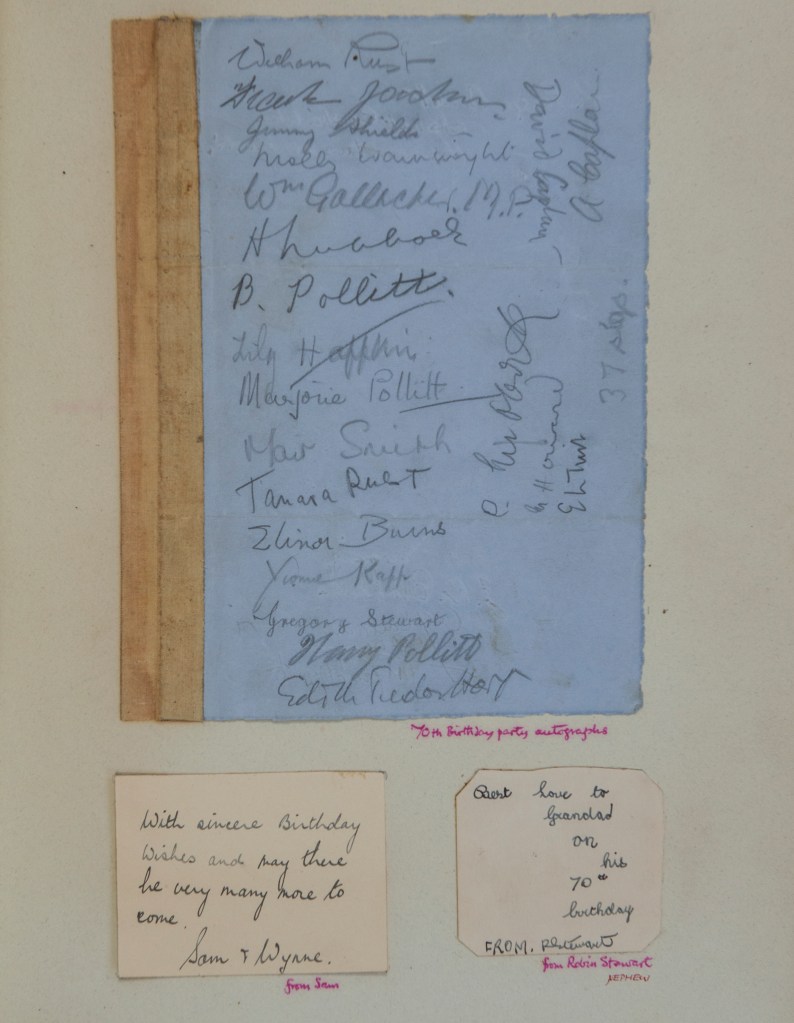 William Rust
Frank Jackson
Jimmy Shields
Molly Wainwright
Wm Gallacher. M.P.
H
B. Pollitt.
Lily Hopkins
Marjorie Pollitt
Smith
Tamara Rust
Elinor Burns
Yvonne Kapp
Gregory Stewart
Harry Pollitt
Edith
David
A Caplan
37 sigs.
70th Birthday party autographs
With sincere Birthday
Wishes and may there
be very many more to
come.
Sam & Wynne.
from Sam
Best love to
Grandad
on
his
70th
birthday
FROM. RStewart
from Robin Stewart
NEPHEW